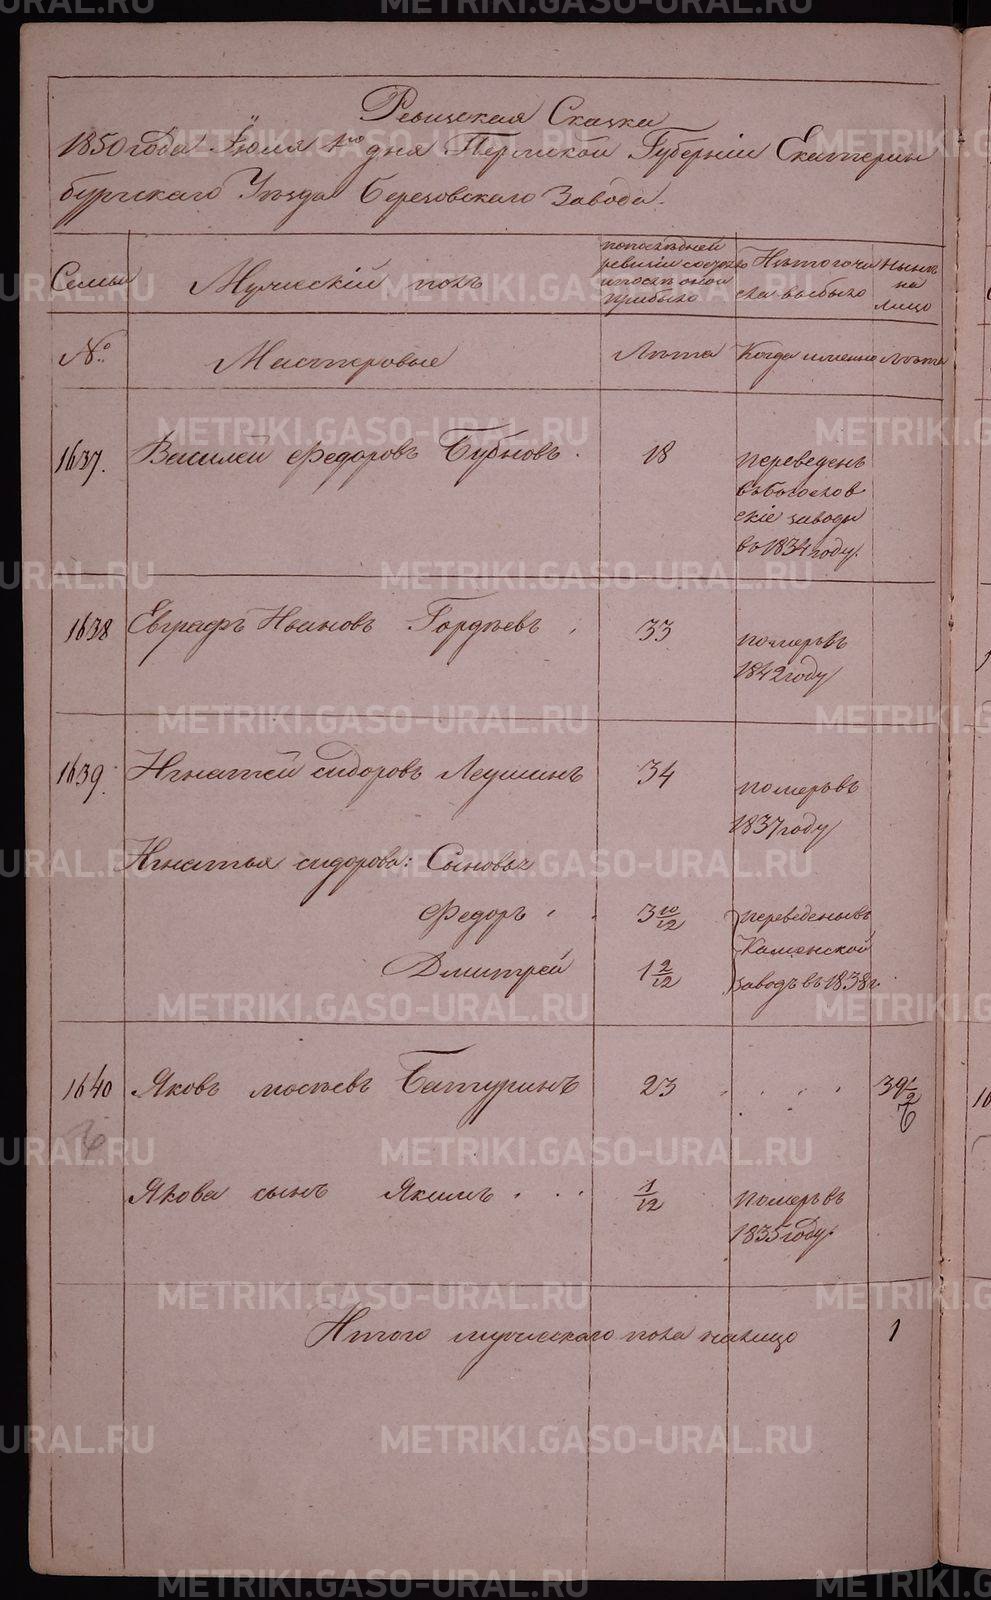 Ревизская Сказка
1850 года Июля 1го дня Пермской Губерніи Екатерин
бургскаго Уѣзда Березовскаго Завода.
Семьи
Мужескій полъ
по последней
ревизіи состояло
и послѣ оной
прибыло
Изъ того числа
выбыло
Нынѣ
на
лицо
№
Мастеровые
Лѣта
Когда именно
Лѣта
1637.
Василей Федоровъ Бубновъ
18
переведенъ
въ Богослов
скіе заводы
въ 1834 году.
1638
Евграфъ Ивановъ Гордѣевъ
33
померъ въ
1842 году
1639.
Игнатей Сидоровъ Леушинъ
34
померъ въ
1837 году
Игнатья Сидорова: Сыновья
Федоръ
3 10/12
переведены въ
Каменской
заводъ въ 1838 г.
Дмитрей
1 2/12
1640
Яковъ Батуринъ
23
39
Якова сынъ Якимъ
1/12
померъ въ
1835 году.
Итого мужескаго пола налицо
1
METRIKI.GASO-URAL.RU